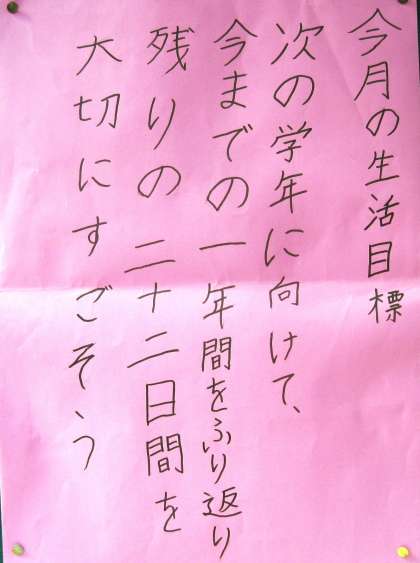 今月の生活目標
次の学年に向けて、
今までの一年間をふり返り
残りの二十二日間を
大切にすごそう